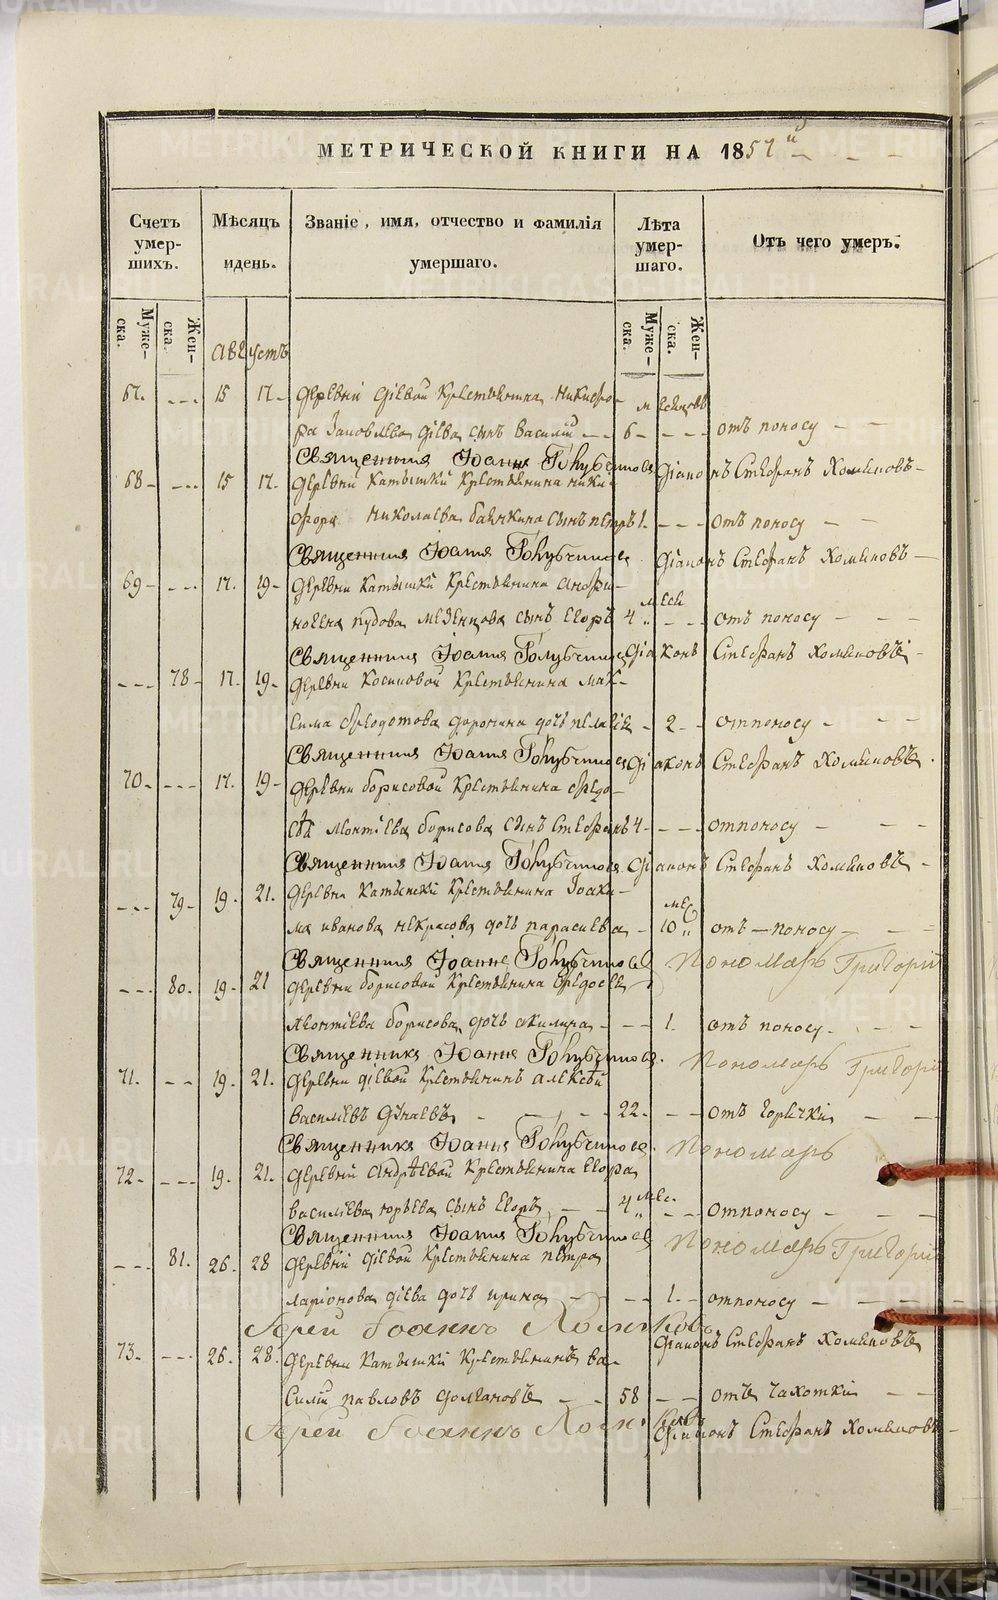 МЕТРИЧЕСКОЙ КНИГИ НА 1857 й
Счетъ умер-шихъ. Мѣсяцъ идень. Званіе, имя, отчество и фамилія умершаго. Лѣта умер-шаго. Отъ чего умеръ.
Муже-ска. Жен-ска. Августъ Муже-ска. Жен-ска.
67. --- 15 17 - деревни діевой крестьянина Никифо- месяцовъ
ра Іаковлева діева сынъ Василій -- 6 - --- отъ поносу --
Священникъ Іоаннъ Голубчиковъ діаконъ Стефанъ Хомяковъ -
68 - --- 15 17. деревни Катышки крестьянина Ники-
фора Николаева сынъ петръ 1. --- отъ поносу --
Священникъ Іоаннъ Голубчиковъ діаконъ Стефанъ Хомяковъ -
69 - --- 17. 19 - деревни Катышки крестьянина меся
пудова сынъ Егоръ 4 „ -- отъ поносу ---
Священникъ Іоаннъ Голубчиковъ діаконъ Стефанъ Хомяковъ -
--- 78 - 17. 19 - деревни крестьянина мак-
сима Ѳеодотова доронина дочь пелагія - 2 -- отпоносу ---
Священникъ Іоаннъ Голубчиковъ діаконъ Стефанъ Хомяковъ.
70 --- 17. 19 - деревни борисовой крестьянина Ѳедо-
леонтіева борисова сынъ Стефанъ 4 - --- отпоносу ---
Священникъ Іоаннъ Голубчиковъ діаконъ Стефанъ Хомяковъ -
--- 79 - 19 - 21. деревни Катышки крестьянина Іоаки- мес
ма иванова некрасова дочь параскева - 10 „ отъ - поносу ---
Священникъ Іоаннъ Голубчиковъ Пономарь Григорій
--- 80. 19 - 21 деревни борисовой крестьянина
леонтіева борисова дочь акилина --- 1. отъ поносу ---
Священникъ Іоаннъ Голубчиковъ. Пономарь Григорій
71. -- 19 21. деревни діевой крестьянинъ алексѣй
василіевъ --- 22 - --- отъ горячки --
Священникъ Іоаннъ Голубчиковъ. Пономарь
72 - --- 19. 21. деревни андрѣевой крестьянина Егора
василіева юрьева сынъ Егоръ -- 4 мес. -- отпоносу ---
Священникъ Іоаннъ Голубчиковъ Пономарь Григорій
--- 81. 26. 28 деревни діевой крестьянина петра
ларіонова діева дочь ирина --- 1. - отпоносу ---
Іерей Іоаннъ діаконъ Стефанъ Хомяковъ
73. --- 26. 28. деревни Катышки крестьянинъ ва-
силій павловъ -- 58 -- отъ чахотки --
Іерей Іоаннъ діаконъ Стефанъ Хомяковъ -